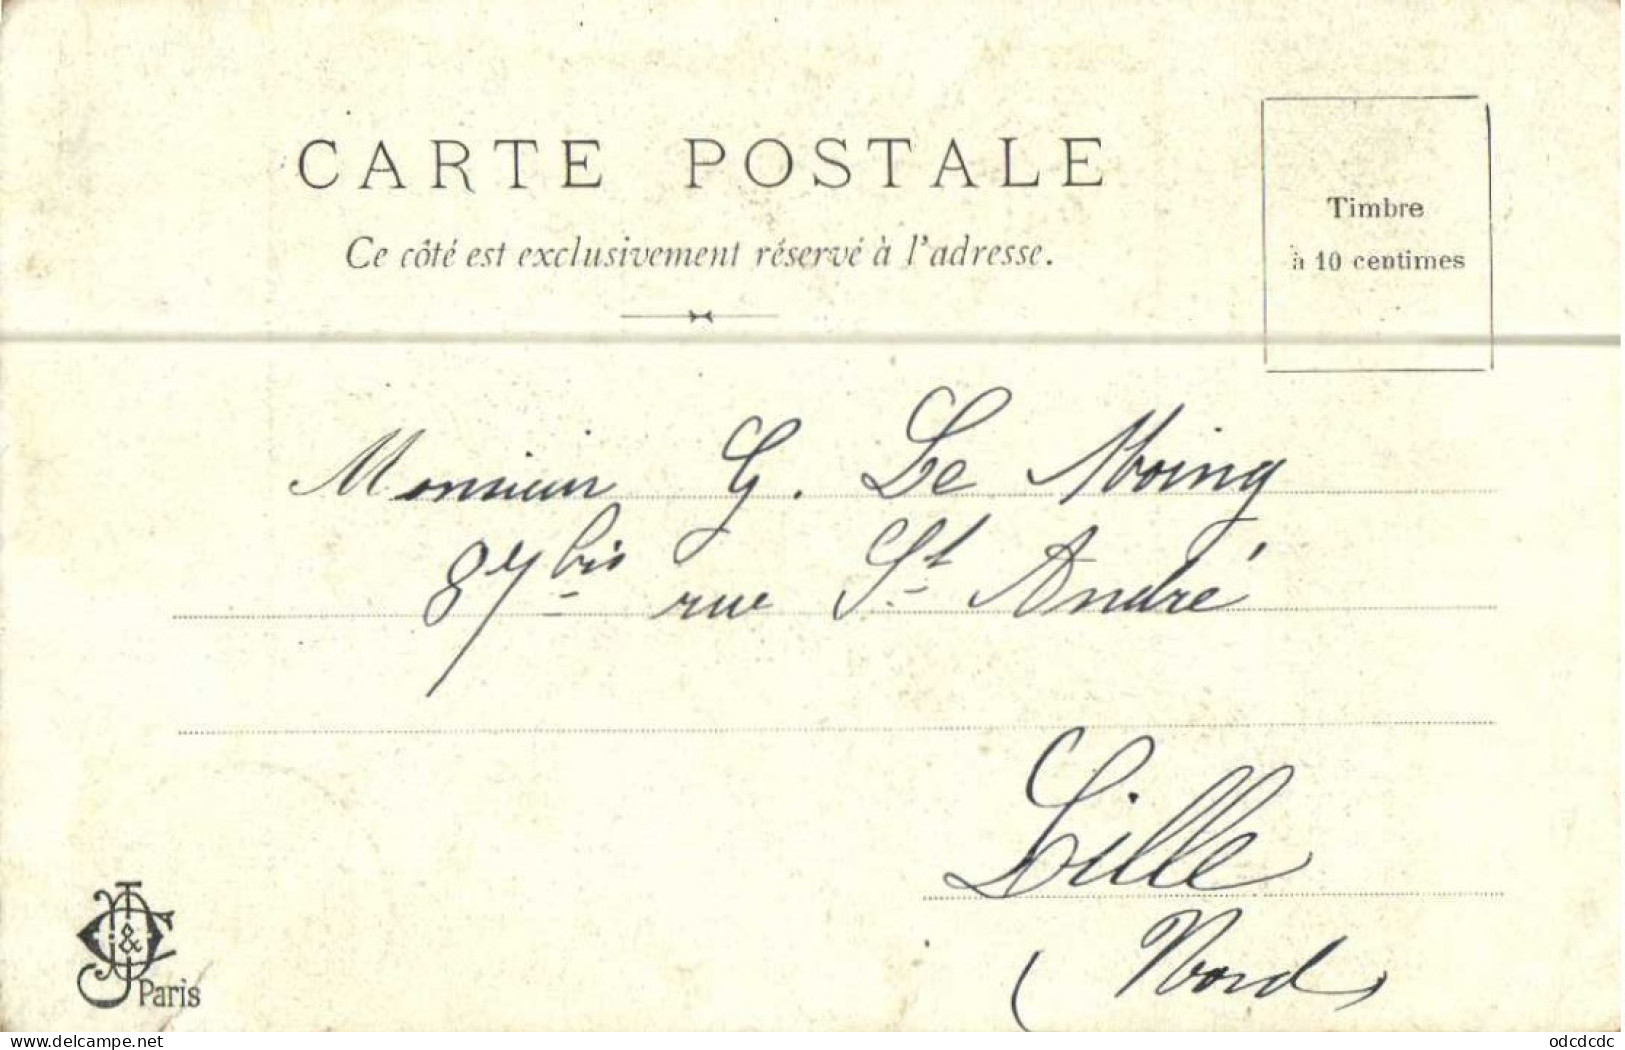 CARTE POSTALE
Ce côté est exclusivement réservé à l'adresse.
Timbre
à 10 centimes
Monsieur G. Le Moing
87 bis rue St André
Lille
(Nord)
&
Paris
delcampe.net
odcdcdc